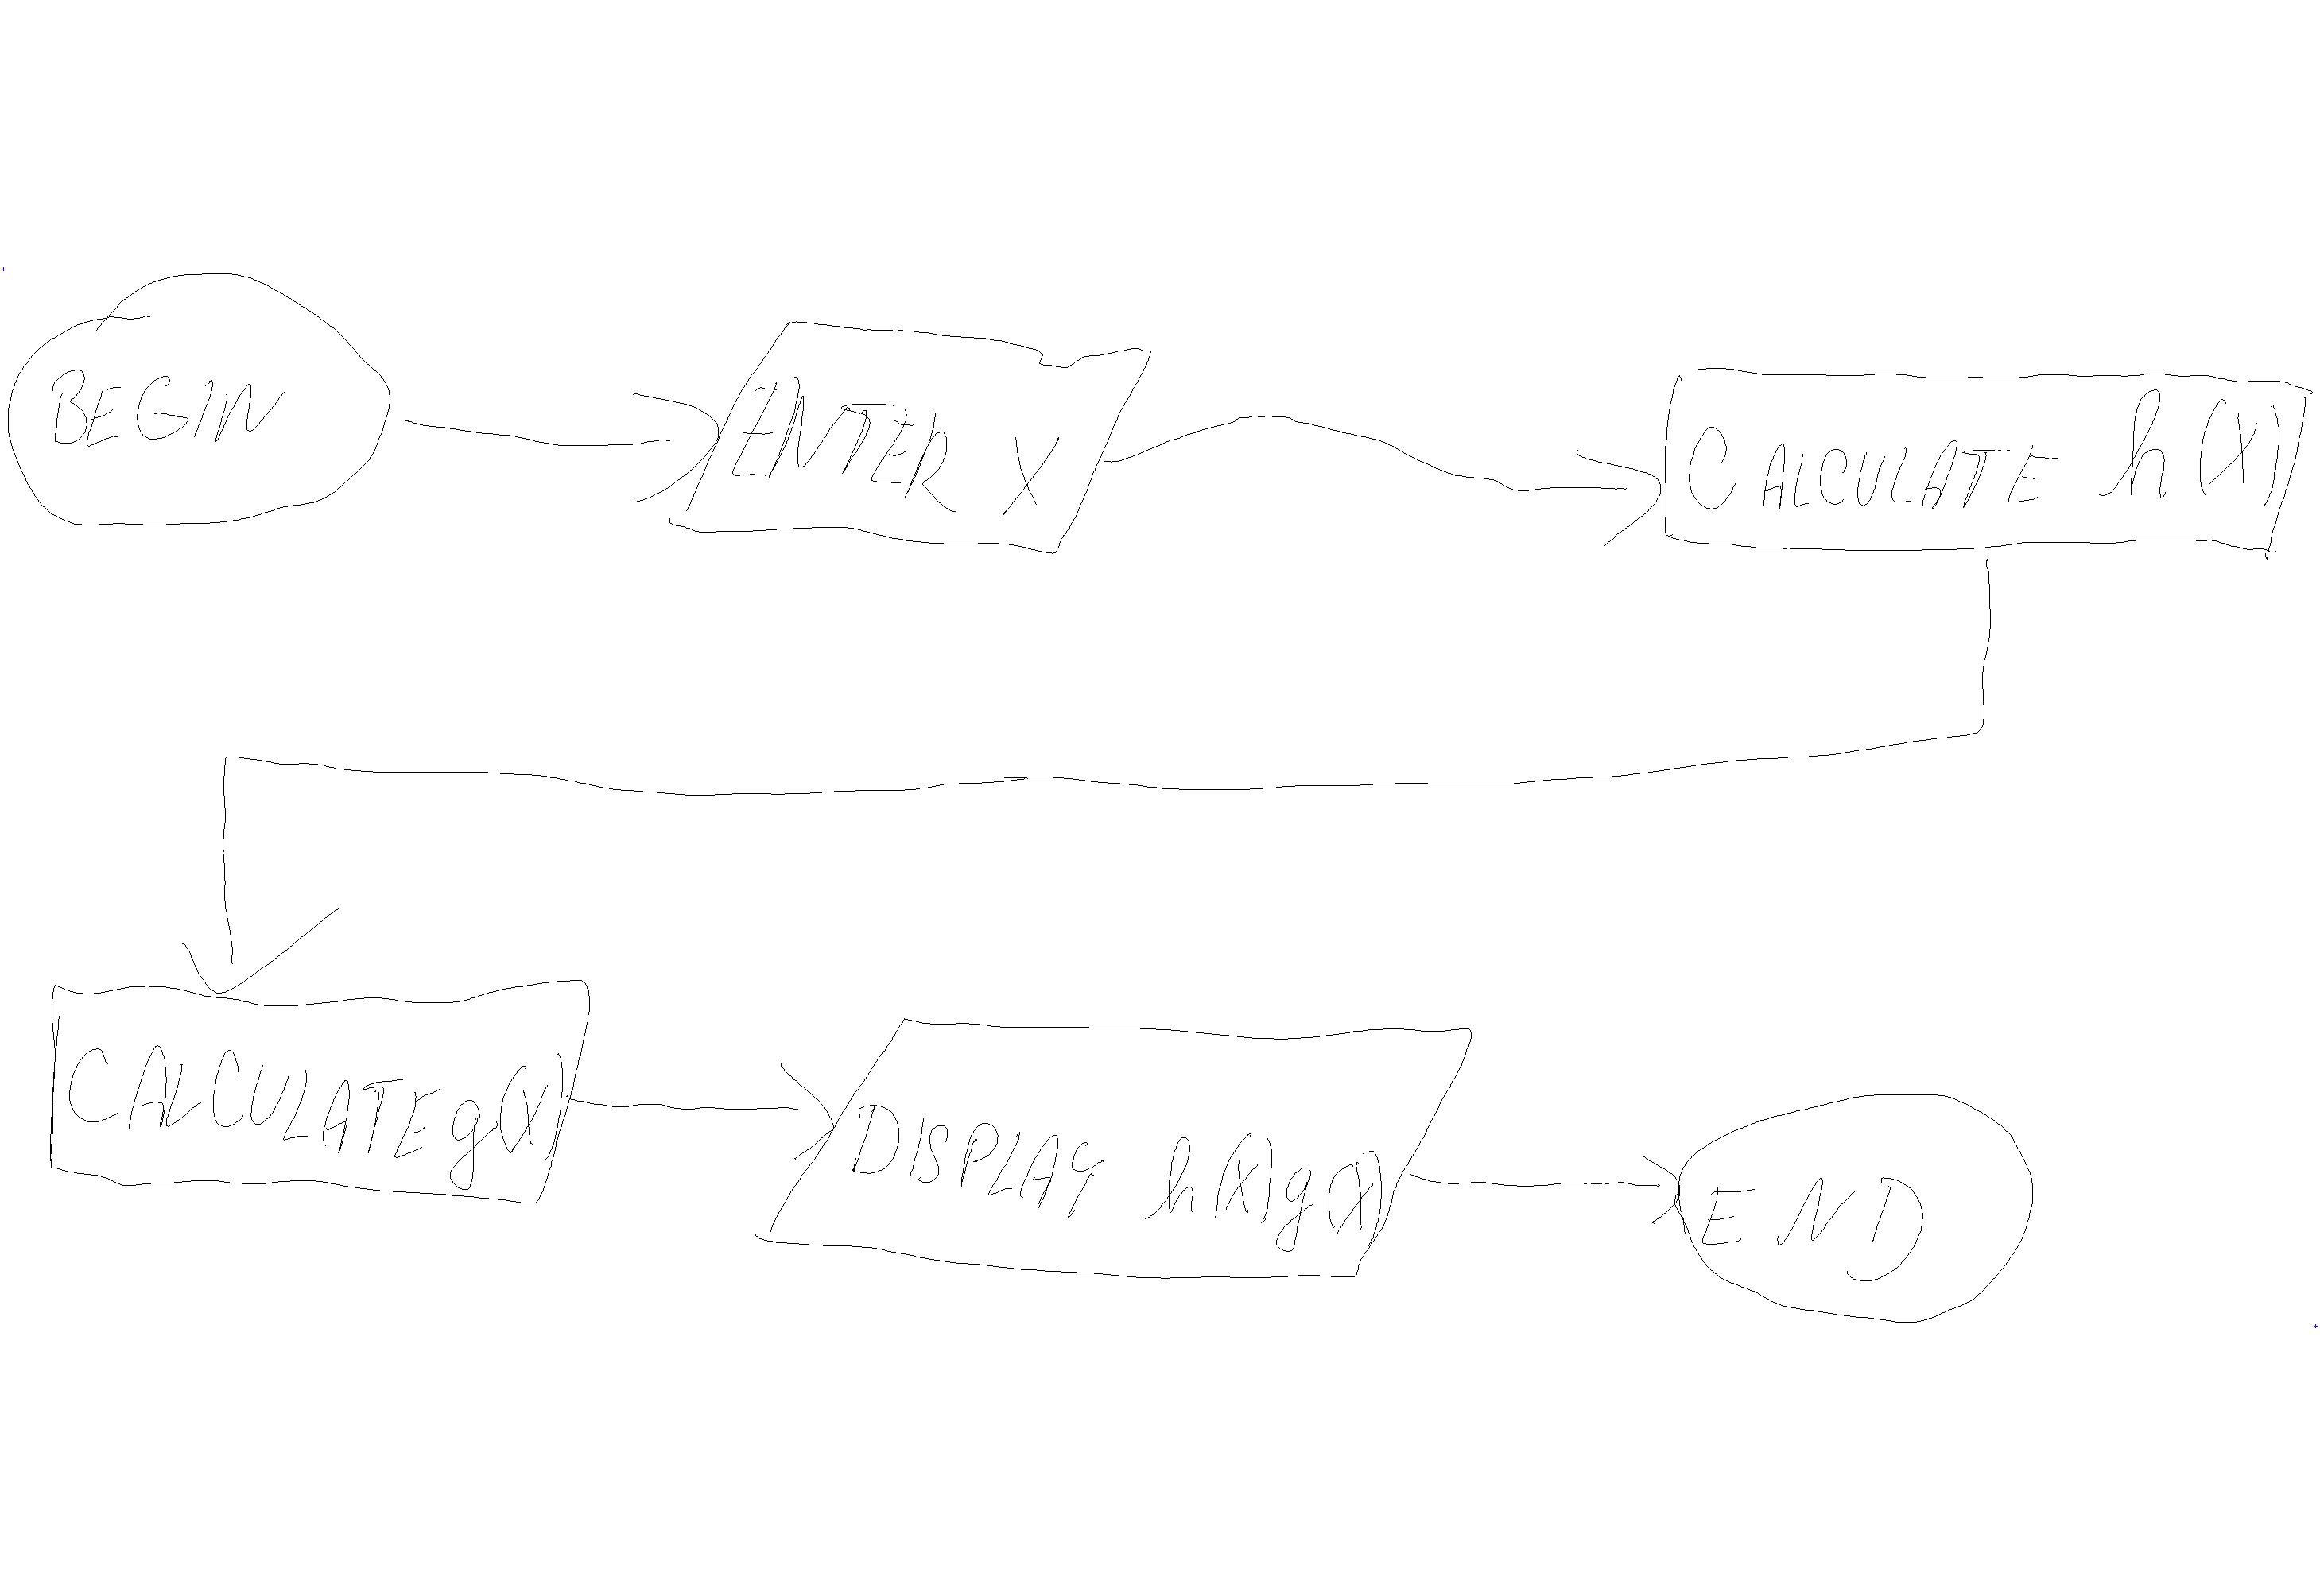 BEGIN
ENTER X
CALCULATE h(x)
CALCULATE g(x)
DISPLAY h(x)g(x)
END